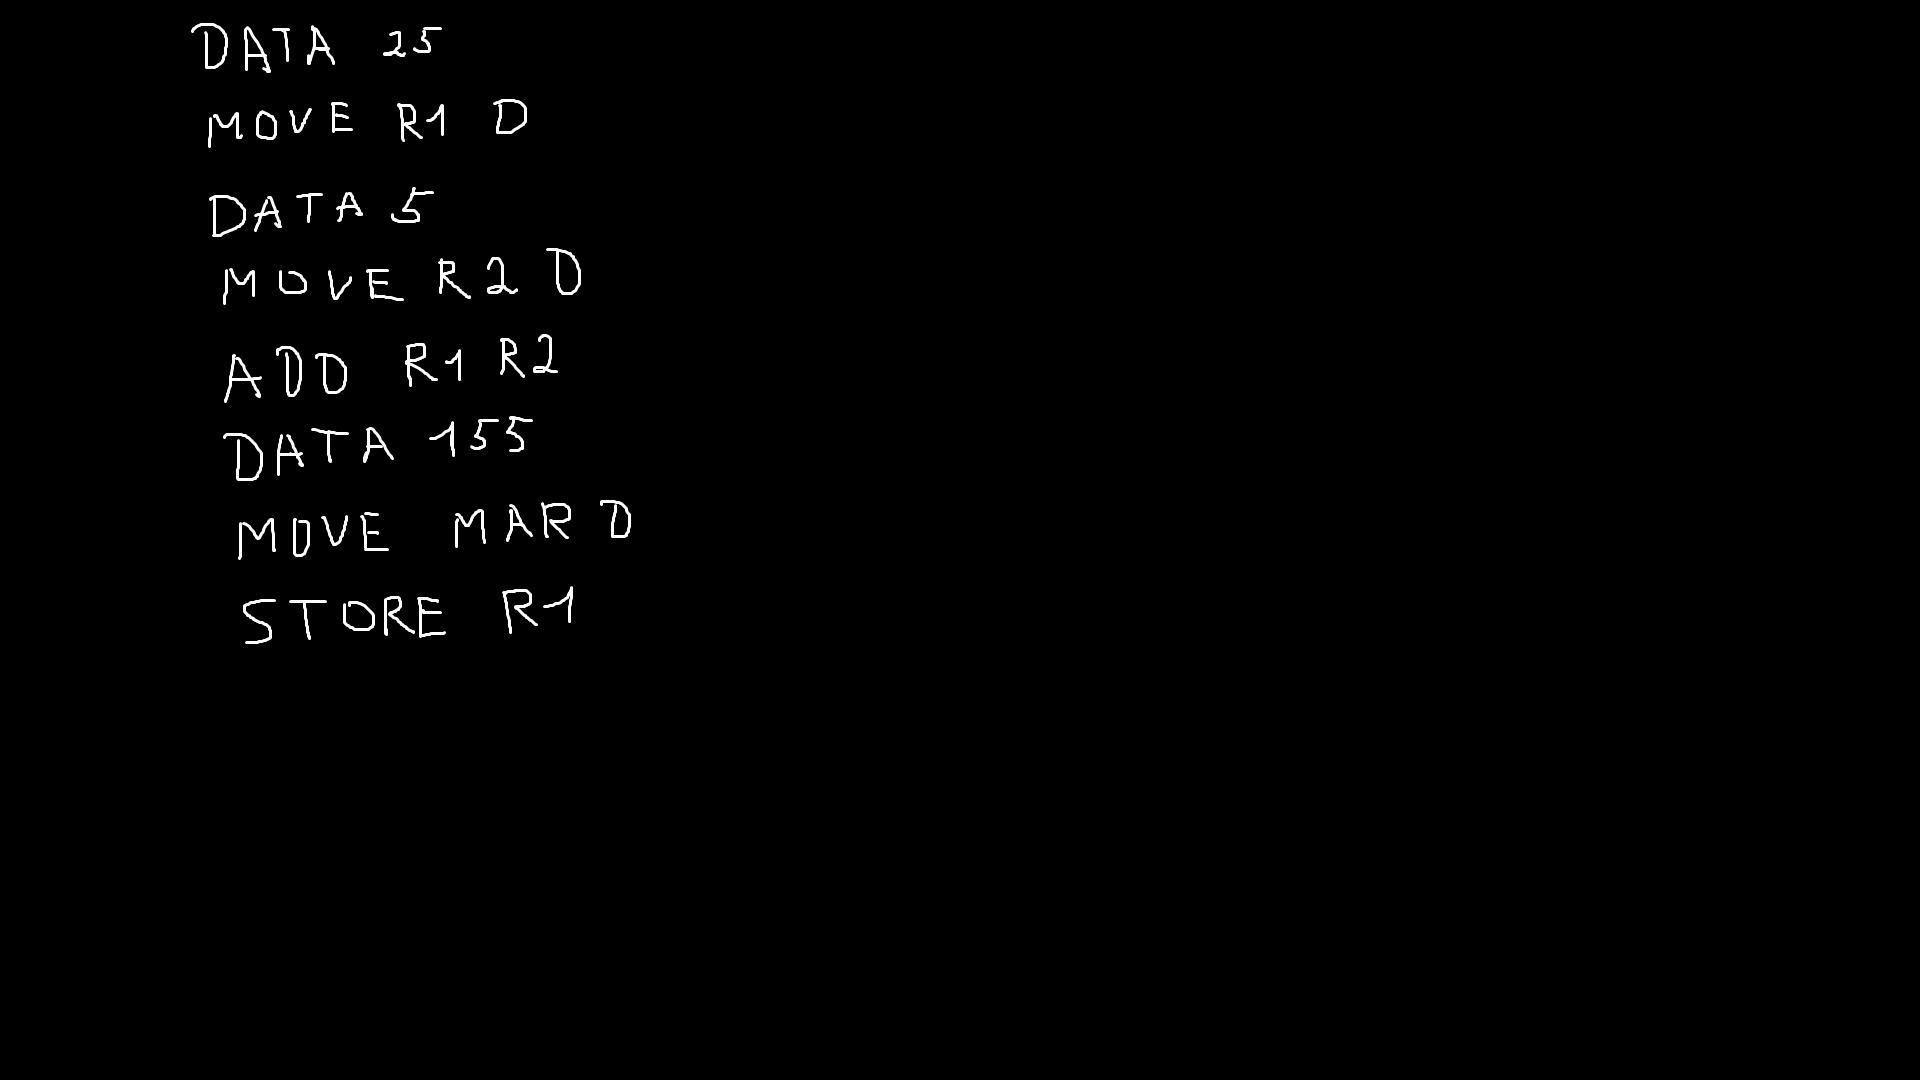 DATA 25
MOVE R1 D
DATA 5
MOVE R2 D
ADD R1 R2
DATA 155
MOVE MAR D
STORE R1